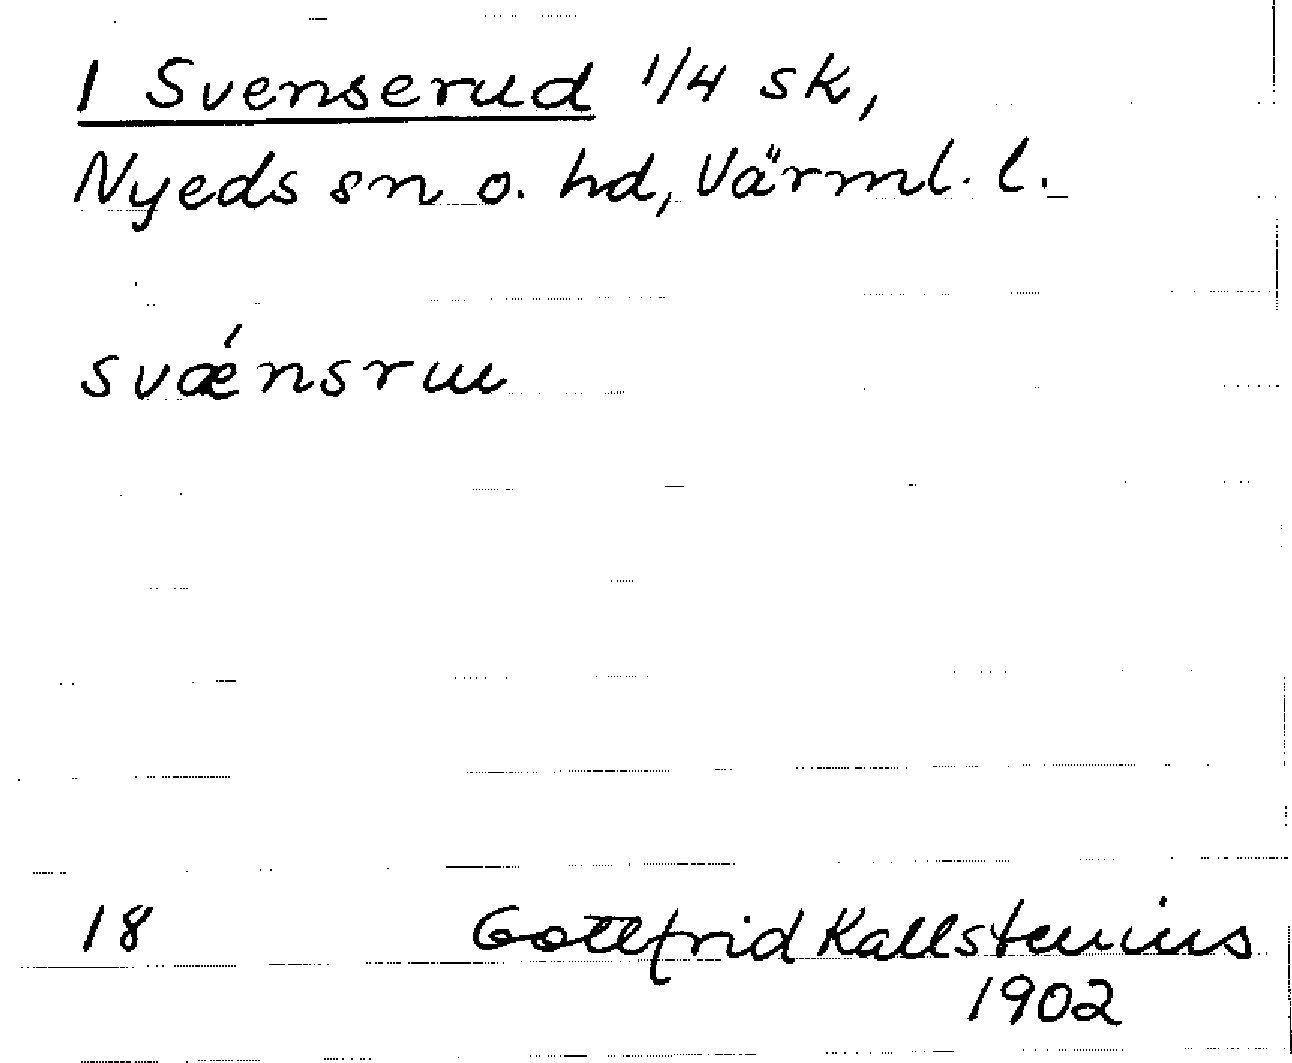 1 Svenserud 1/4 sk,
Nyeds sn o. hd, Värml. l.
svǽnsru
18 Gottfrid Kallstenius
1902